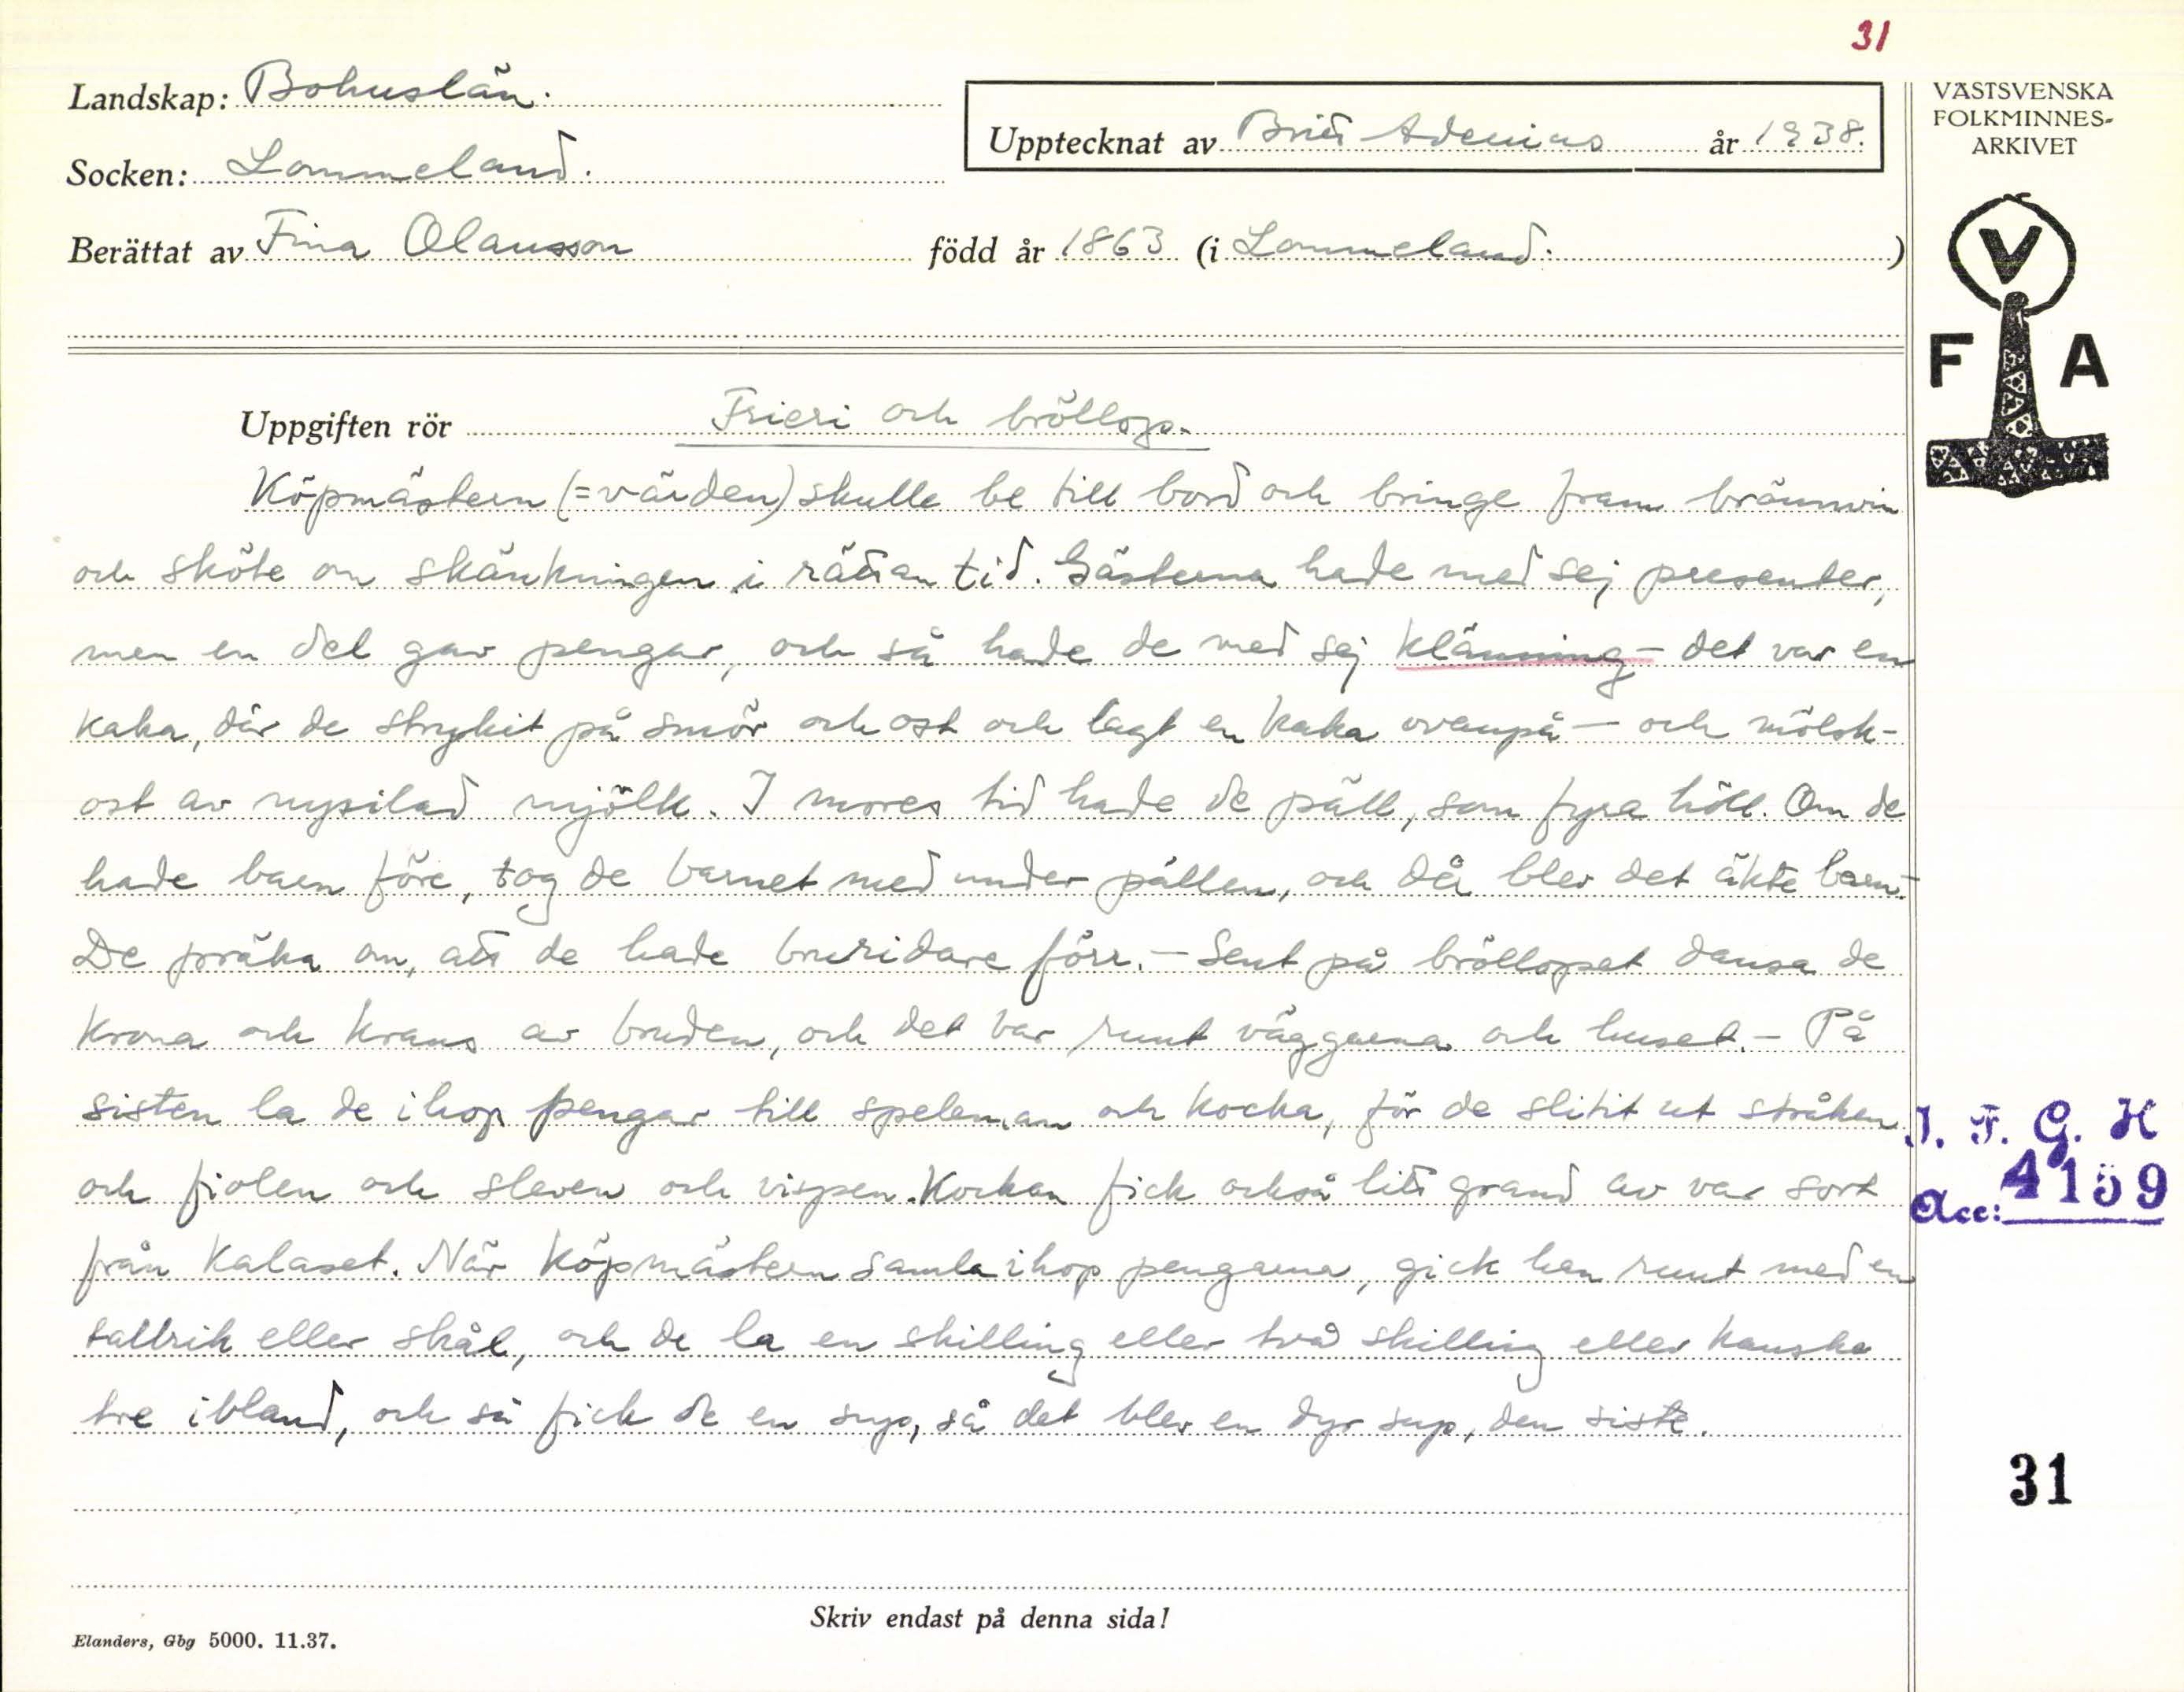 31
Landskap: Bohuslän.
Upptecknat av Britt Adenius år 1938.
Socken: Lommeland.
Berättat av Fina Olausson född år 1863 (i Lommeland.)
VÄSTSVENSKA
FOLKMINNES-
ARKIVET
V
F A
Uppgiften rör Frieri och bröllop.
Köpmästern (=värden) skulle be till bord och bringe fram brännvin
och sköte om skänkningen i rättan tid. Gästerna hade med sej presenter,
men en del gav pengar, och så hade de med sej klänning – det var en
kaka, där de strykit på smör och ost och lagt en kaka ovanpå – och mölsk-
ost av nysilad mjölk. I mores tid hade de päll, som fyra höll. Om de
hade barn före, tog de barnet med under pällen, och då blev det äkte barn.–
De präka om, att de hade bruridare förr. – Sent på bröllopet dansa de
krona och krans av bruden, och det bar runt väggarna och huset. – På
sisten la de ihop pengar till speleman och kocka, för de slitit ut stråken
och fiolen och sleven och vispen. Kockan fick också litt grand av var sort
från kalaset. När köpmästern samla ihop pengarna, gick han runt med en
tallrik eller skål, och de la en skilling eller två skilling eller kanske
tre ibland, och så fick de en sup, så det blev en dyr sup, den siste.
I. F. G. H
Acc: 4159
31
Skriv endast på denna sida!
Elanders, Gbg 5000. 11.37.